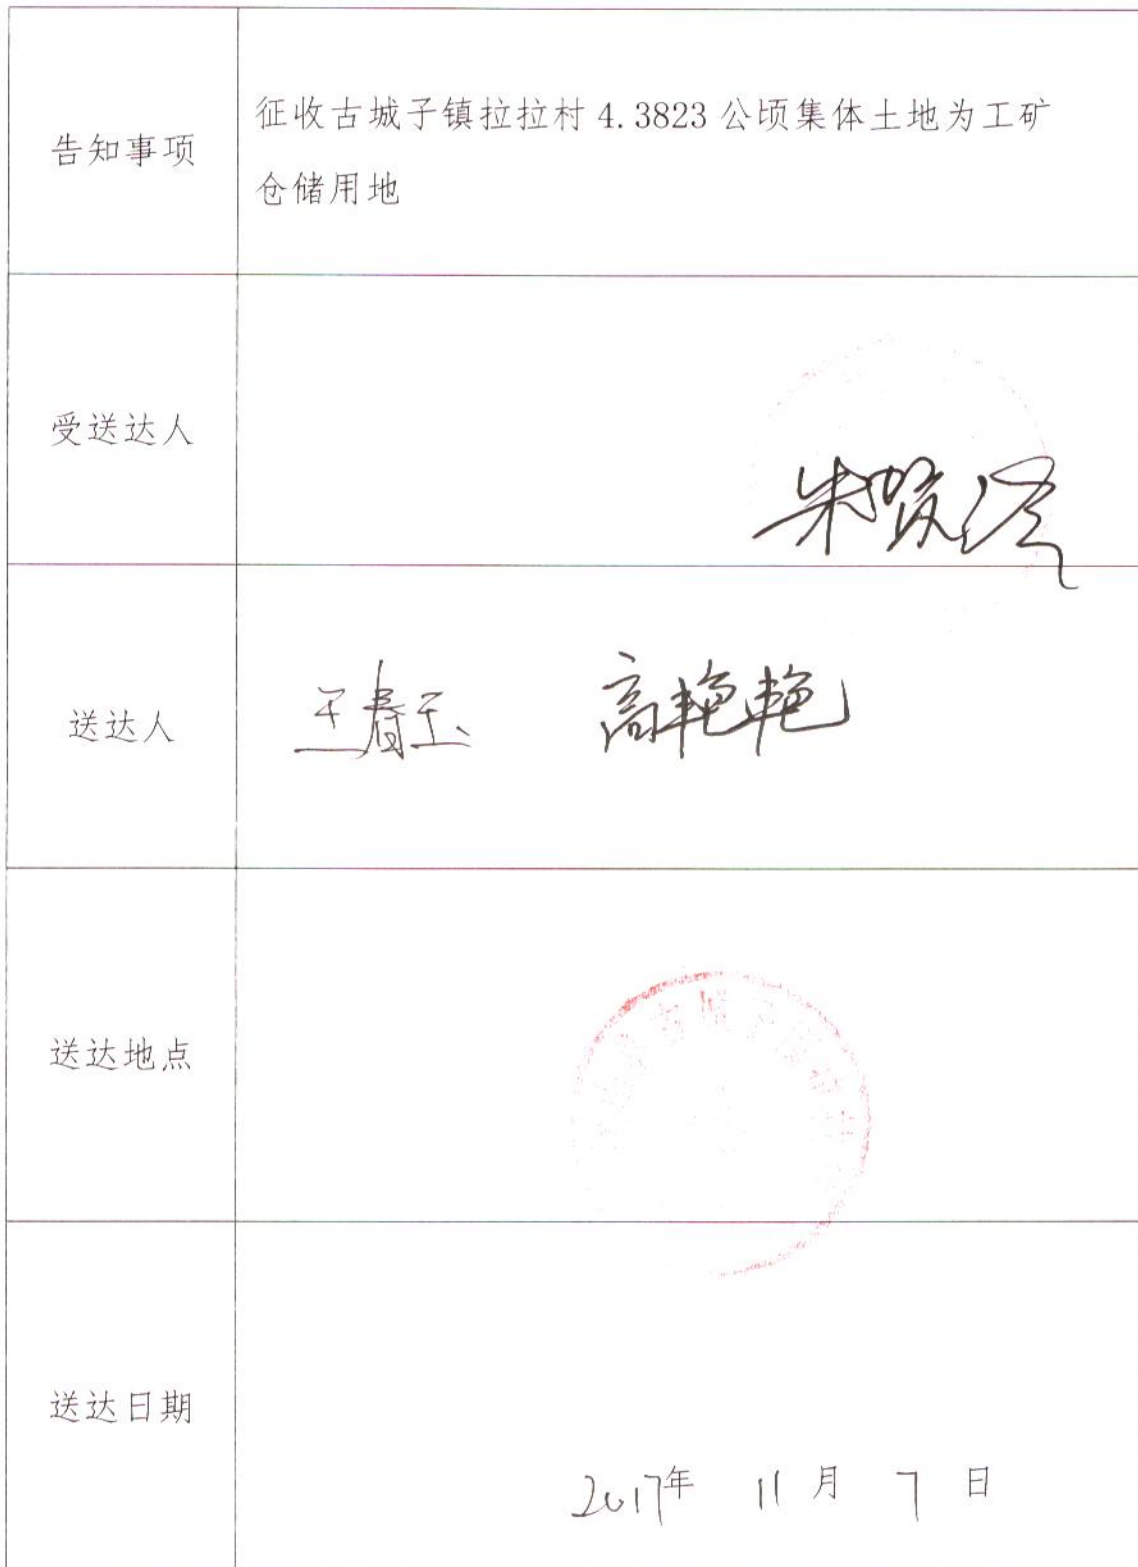 告知事项
征收古城子镇拉拉村 4.3823 公顷集体土地为工矿
仓储用地
受送达人
送达人
王春玉 高艳艳
送达地点
送达日期
2017年 11 月 7 日